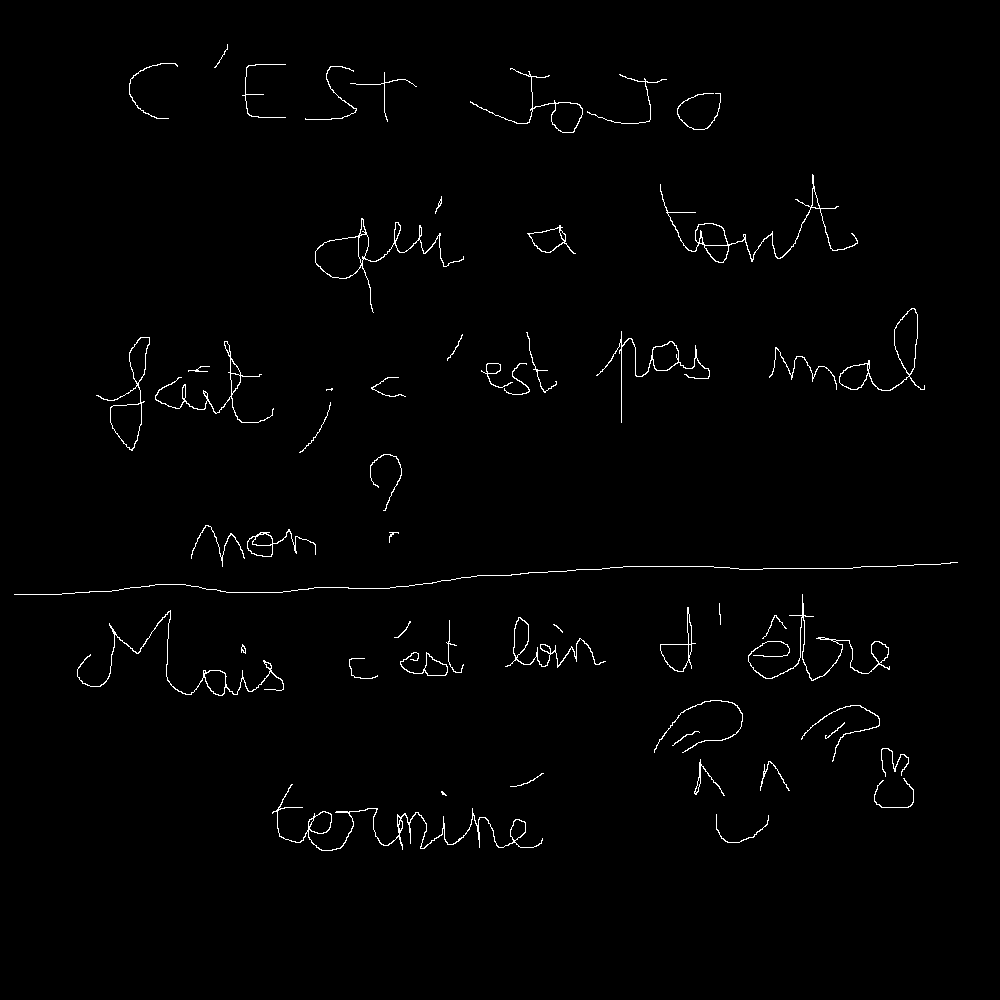 C'EST JOJO
qui a tout
fait, c'est pas mal
non ?
Mais c'est loin d'être
terminé